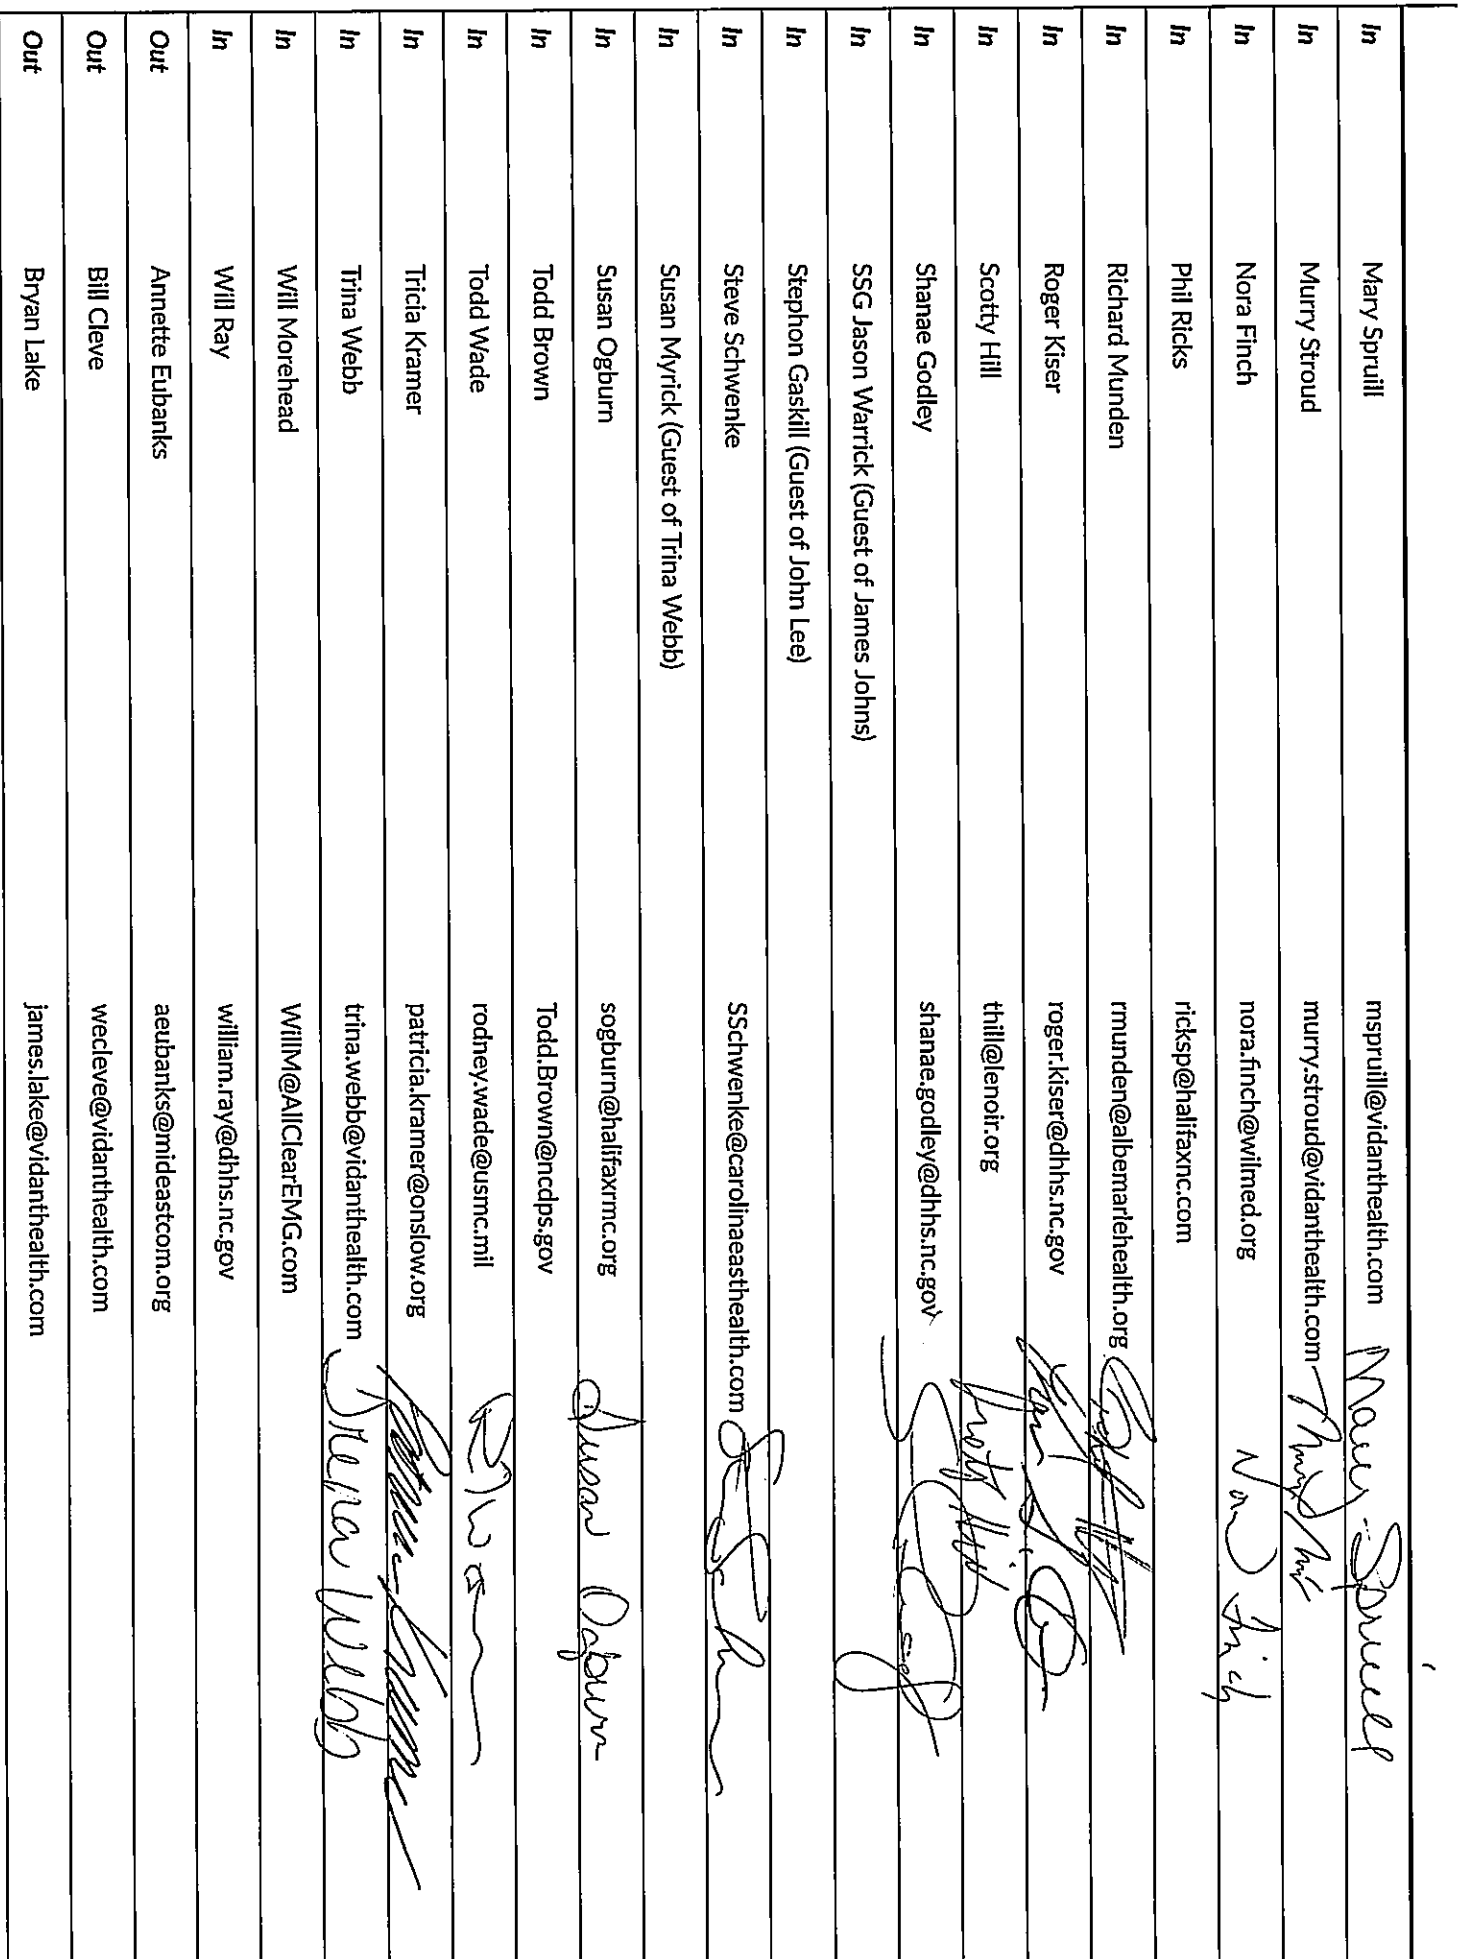 In Mary Spruill mspruill@vidanthealth.com Mary Spruill
In Murry Stroud murry.stroud@vidanthealth.com
In Nora Finch nora.finch@wilmed.org Nora Finch
In Phil Ricks ricksp@halifaxnc.com
In Richard Munden rmunden@albemarlehealth.org
In Roger Kiser roger.kiser@dhhs.nc.gov
In Scotty Hill thill@lenoir.org Scotty Hill
In Shanae Godley shanae.godley@dhhs.nc.gov
In SSG Jason Warrick (Guest of James Johns)
In Stephon Gaskill (Guest of John Lee)
In Steve Schwenke SSchwenke@carolinaeasthealth.com
In Susan Myrick (Guest of Trina Webb)
In Susan Ogburn sogburn@halifaxrmc.org Susan Ogburn
In Todd Brown Todd.Brown@ncdps.gov
In Todd Wade rodney.wade@usmc.mil
In Tricia Kramer patricia.kramer@onslow.org
In Trina Webb trina.webb@vidanthealth.com Trena Webb
In Will Morehead WillM@AllClearEMG.com
In Will Ray william.ray@dhhs.nc.gov
Out Annette Eubanks aeubanks@mideastcom.org
Out Bill Cleve wecleve@vidanthealth.com
Out Bryan Lake james.lake@vidanthealth.com